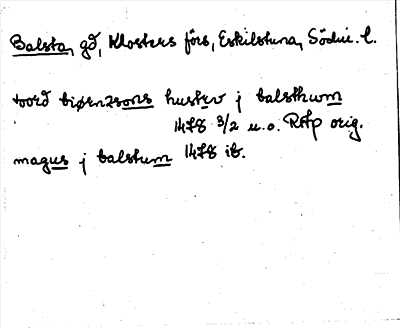 Balsta, gd, Klosters förs, Eskilstuna, Södm. l.
toord biørnzsons hustrv j balsthwm
1478 3/2 u.o. RAp orig.
magus j balstum 1478 ib.